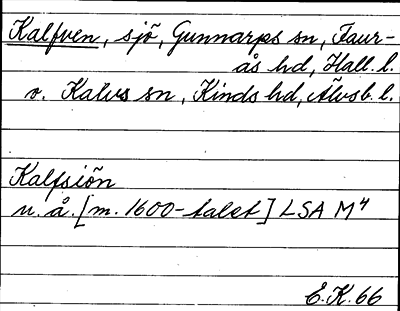 Kalfven, sjö, Gunnarps sn, Faur-
ås hd, Hall. l.
o. Kalvs sn, Kinds hd, Älvsb. l.
Kalfsiön
u. å. [m. 1600-talet] LSA M⁴
E.K. 66